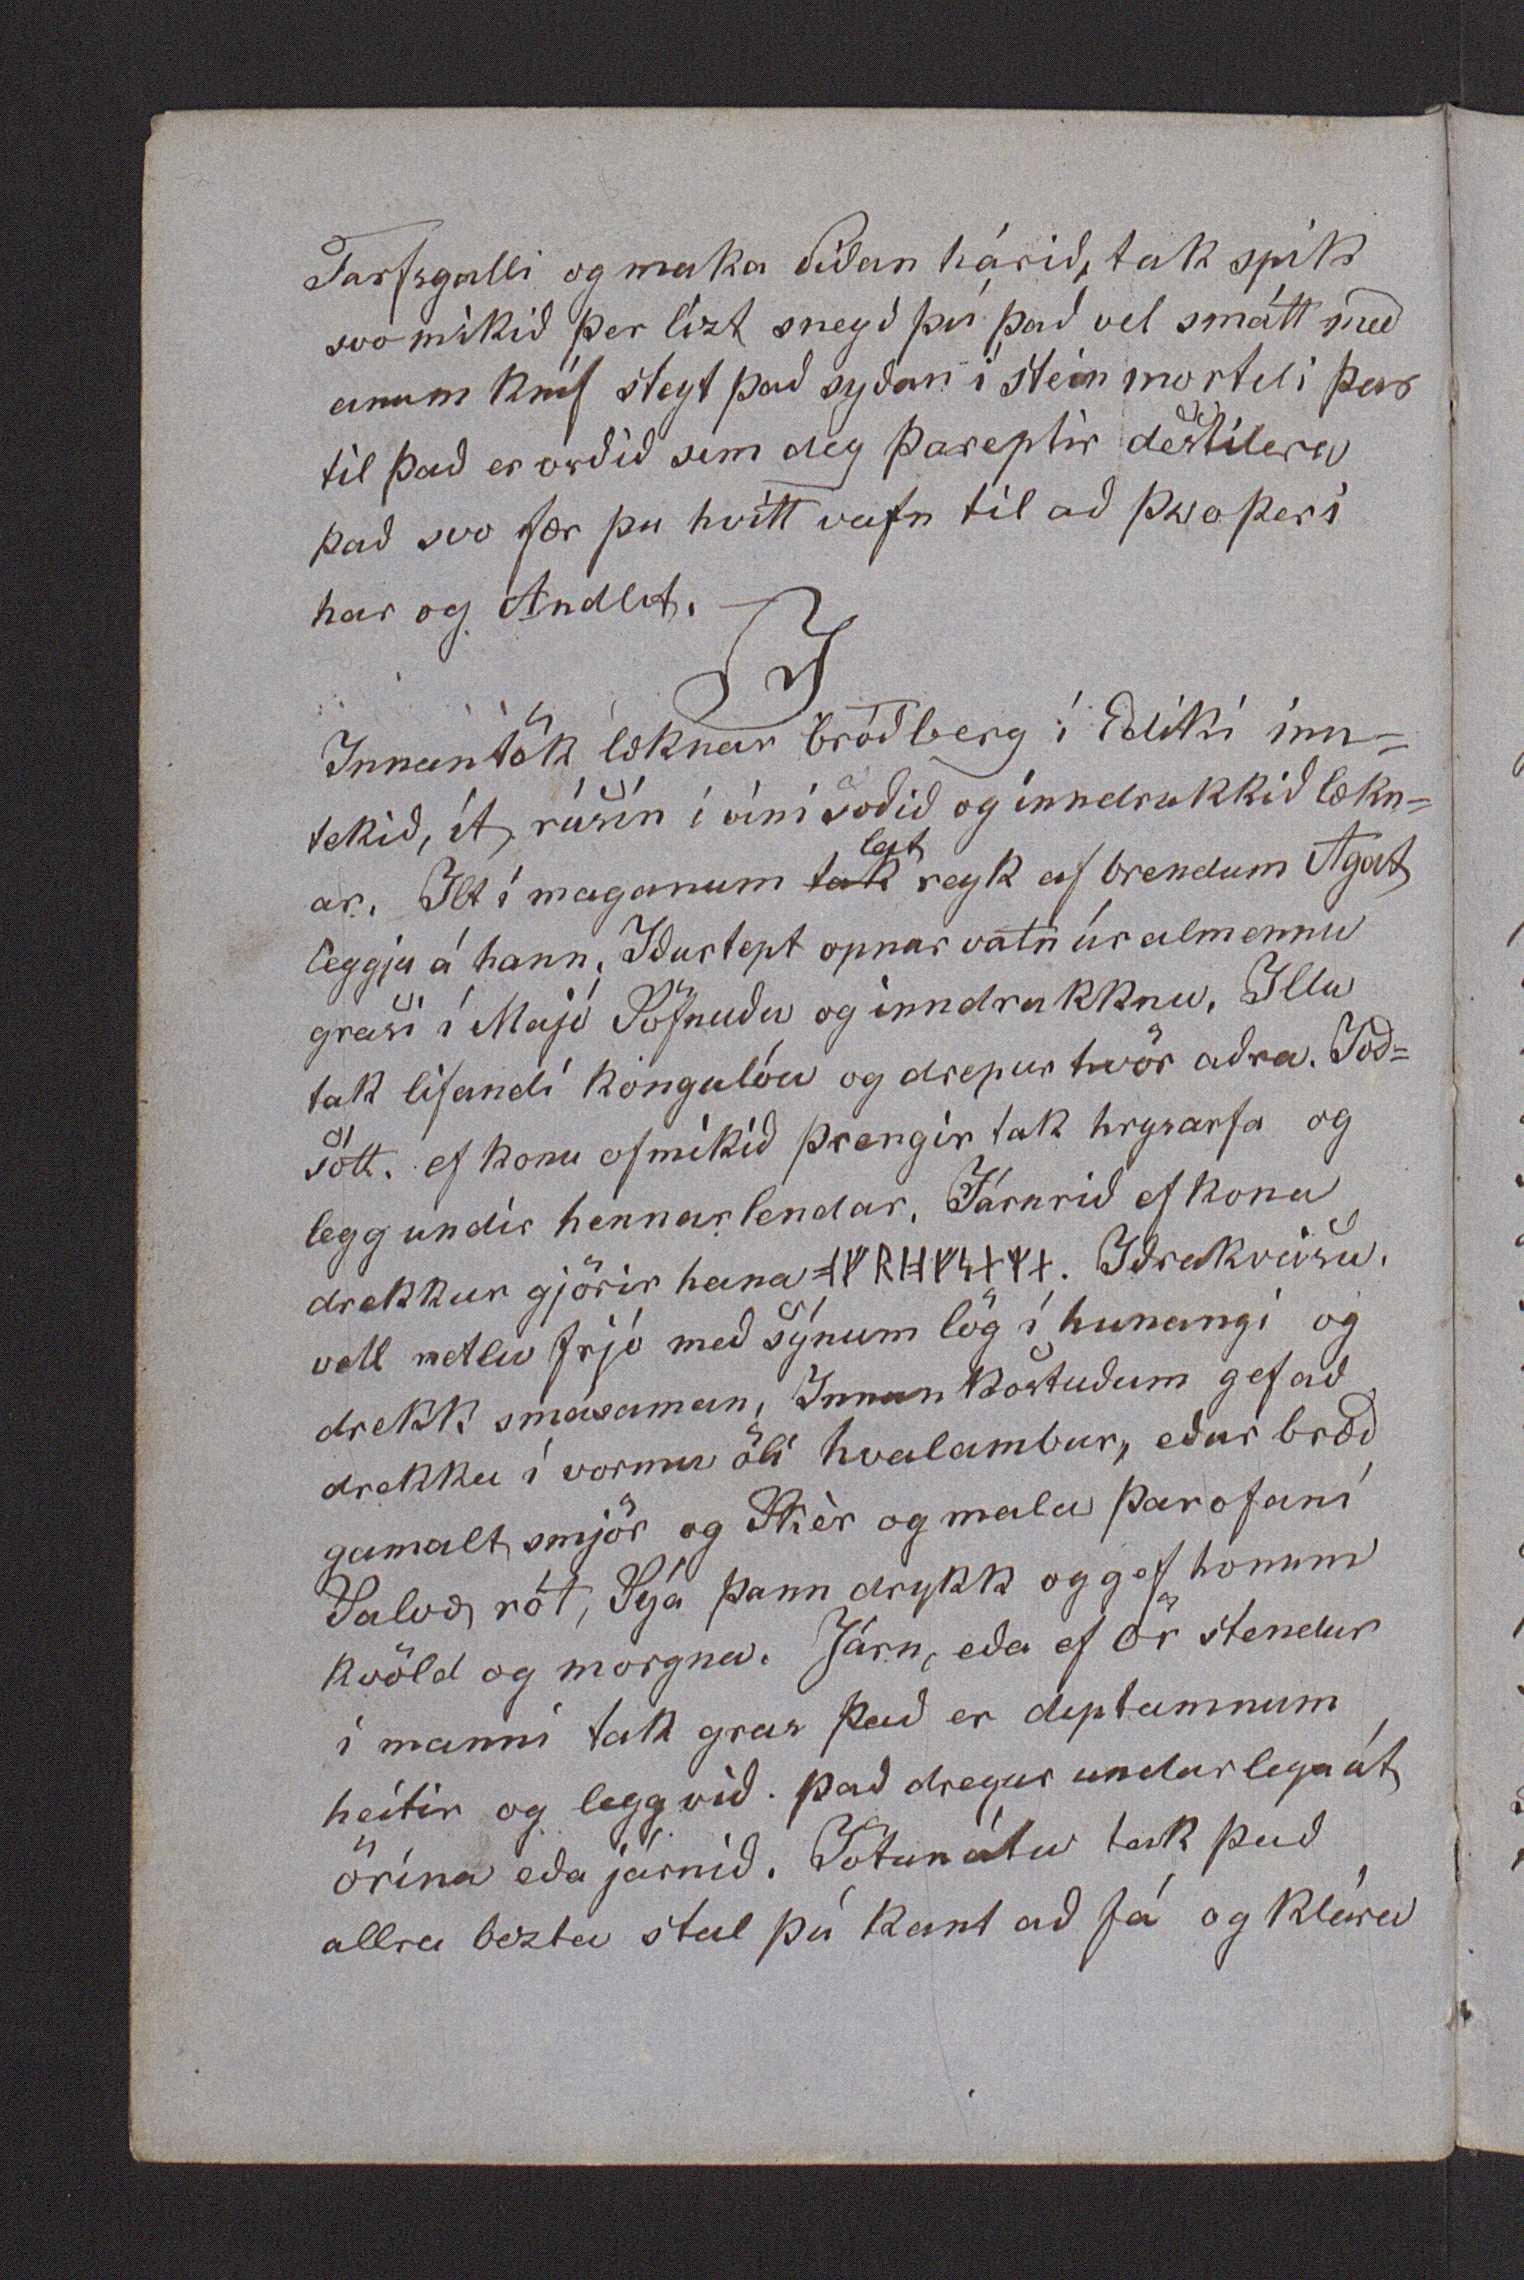 Tarfsgalli og maka síðan hárið, tak spik
svo mikið þer lízt sneyð þú það vel smátt með
einum kníf steyt það syðan í stein morteli þar
til það er orðið sem deg þareptir destilera
það svo fær þu hvítt vatn til að þvo þer í
har og Andlit.
I
Innantök læknar bróðberg í Ediki inn=
tekið, ít, rúsín í víni soðið og inndrukkið lækn=
ar. Ilt í maganum lagt reyk af brendum Agat
leggja á hann. Iðurtept opnar vatn úr almennu
grasi í Majó Söfnuðu og inndrukknu. Illu
tak lifandi kongulóu og drepur hvör aðra. Joð=
sótt. ef konu ofmikið þrengir tak hrysarfa og
legg undir hennar lendar. Járnrið ef kona
drekkur gjörir hana. Iðrakveisu.
vell netlu frjó með sýnum lög í hunangi og
drekk smásaman, Innan köstuðum gef að
drekka í vormu öli hvalambur, eður bræð
gamalt smjör og Skèr og mala þar ofaní
Salvæ rót, Sýa þann drykk og gef honum
kvöld og morgna. Járn, eða ef Ör stendur
í manni tak gras það er diptamnum
heitir og legg við. það dregur undarlega út
örina eða járnið. Jötunátu tak það
allra bezta stal þú kant að fá og klára